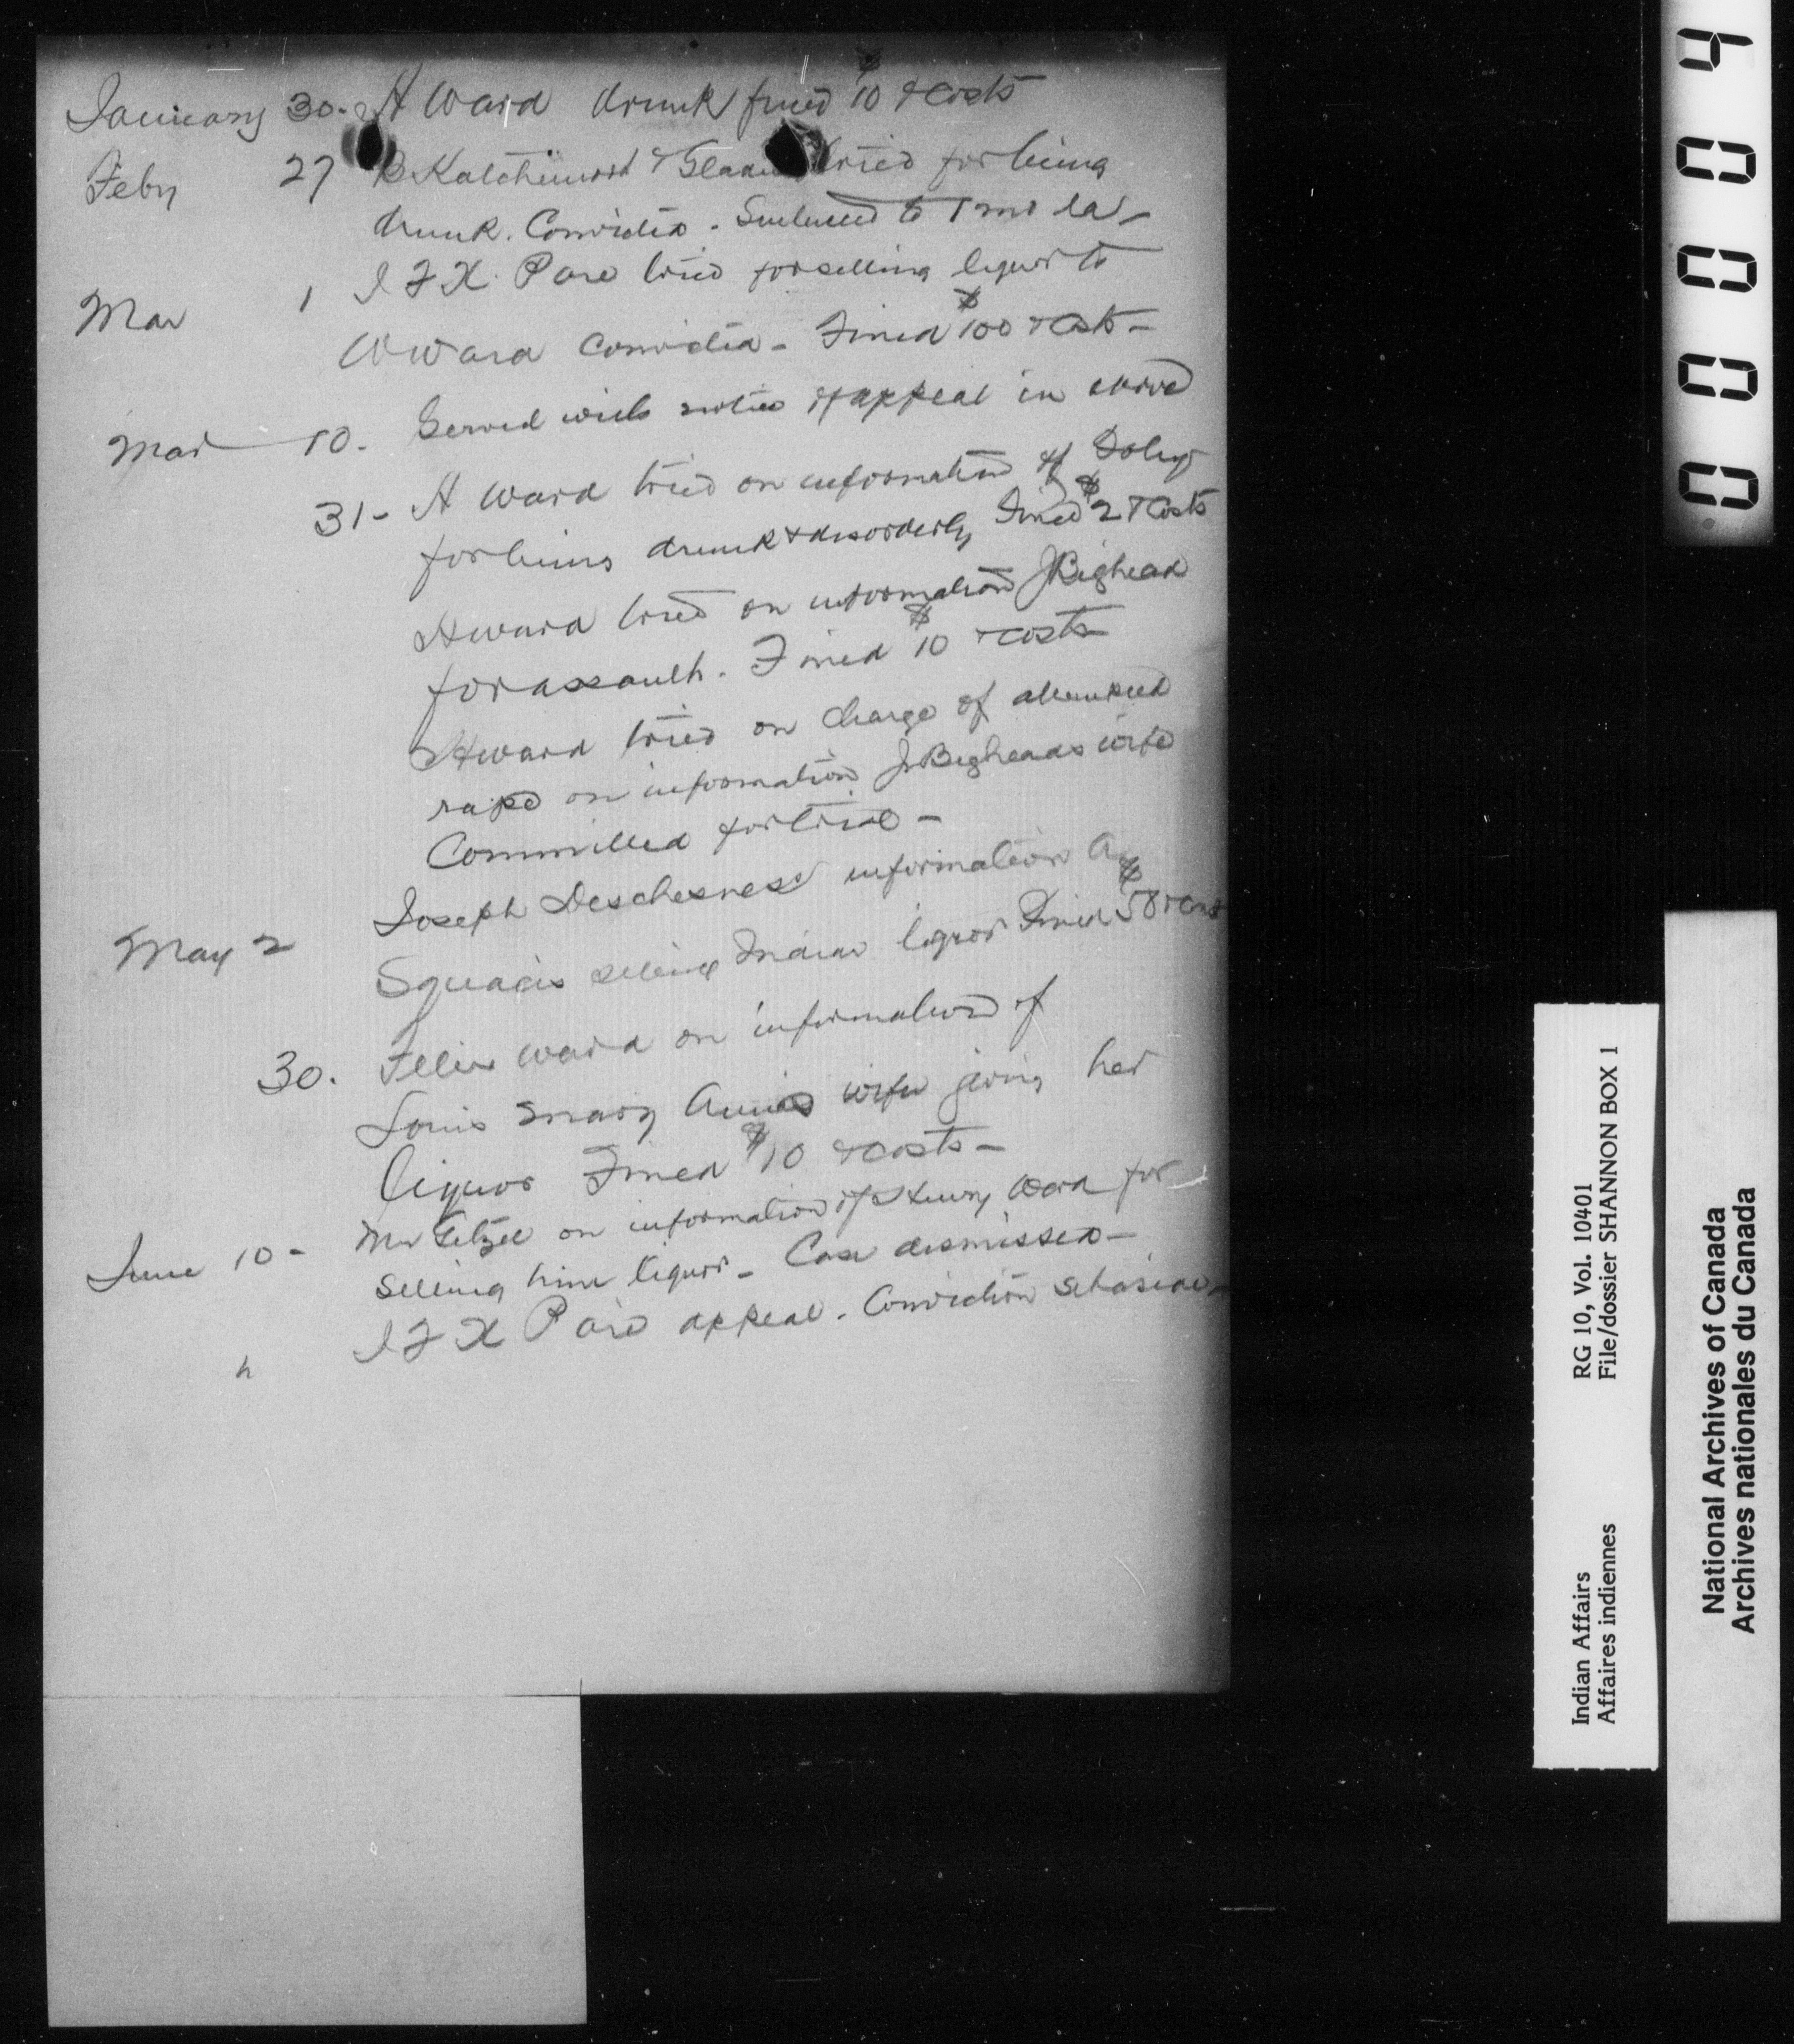 January 30. H Ward drunk fined $10 & costs
Feby 27 B & tried for being
drunk. Convicted. Sentenced to 1 mo
Mar 1 J F X. Pare tried for selling liquor to
Ward convicted - Fined $100 & Costs -
Mar 10. Served with notice of appeal in above
31 - H Ward tried on information of
for being drunk & disorderly Fined $2 & Costs
H Ward tried on information J Bighead
for assault. Fined $10 & costs
H Ward tried on charge of attempted
rape on information J Bigheads wife
Committed for trial -
May 2 Joseph Deschesnes information
selling Indian liquor Fined $50 & costs
30. Felix Ward on information of
Louis Mary Annies wife giving her
liquor Fined $10 & costs -
June 10 - Mr on information of Henry Ward for
selling him liquor - Case dismissed -
" J F X Pare appeal. Conviction set aside -
00004
Indian Affairs RG 10, Vol. 10401
Affaires indiennes File/dossier SHANNON BOX 1
National Archives of Canada
Archives nationales du Canada